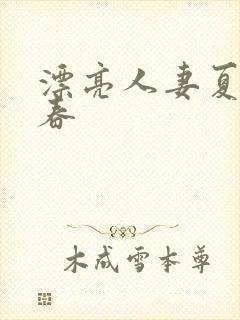 漂亮人妻夏
春
木成雪本尊